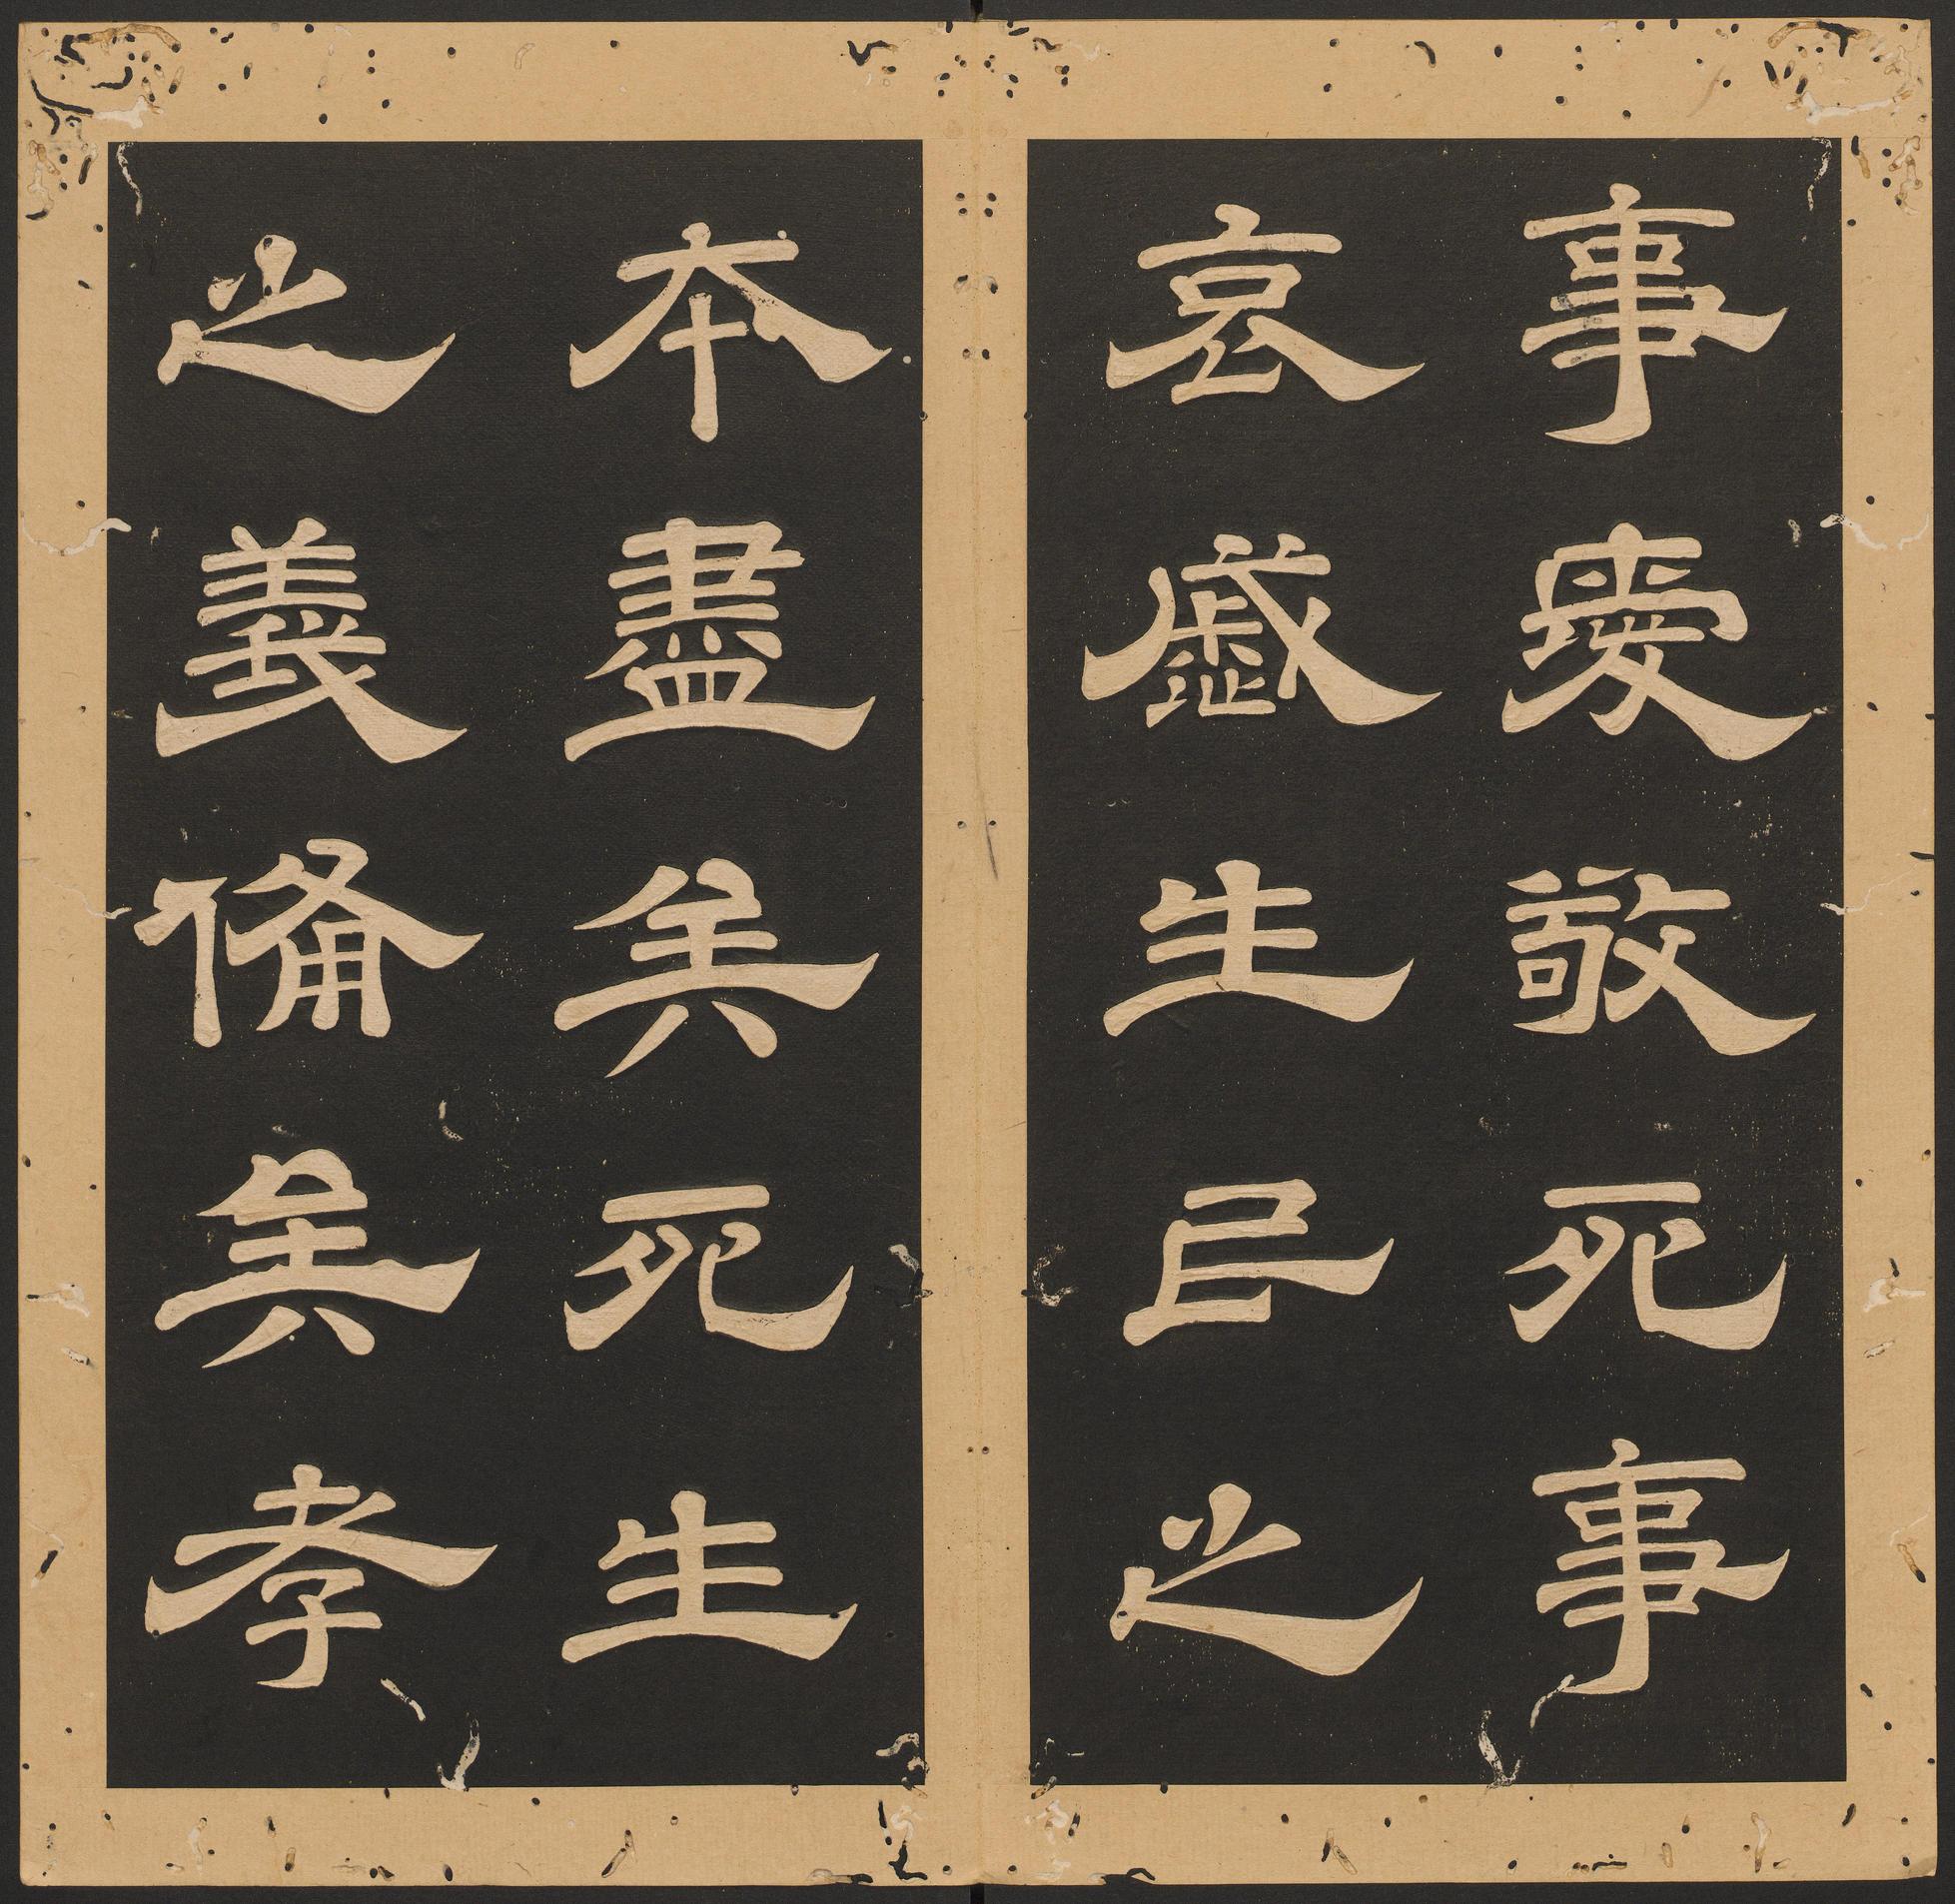 事愛敬死事
哀慼生民之
本盡矣死生
之義備矣孝